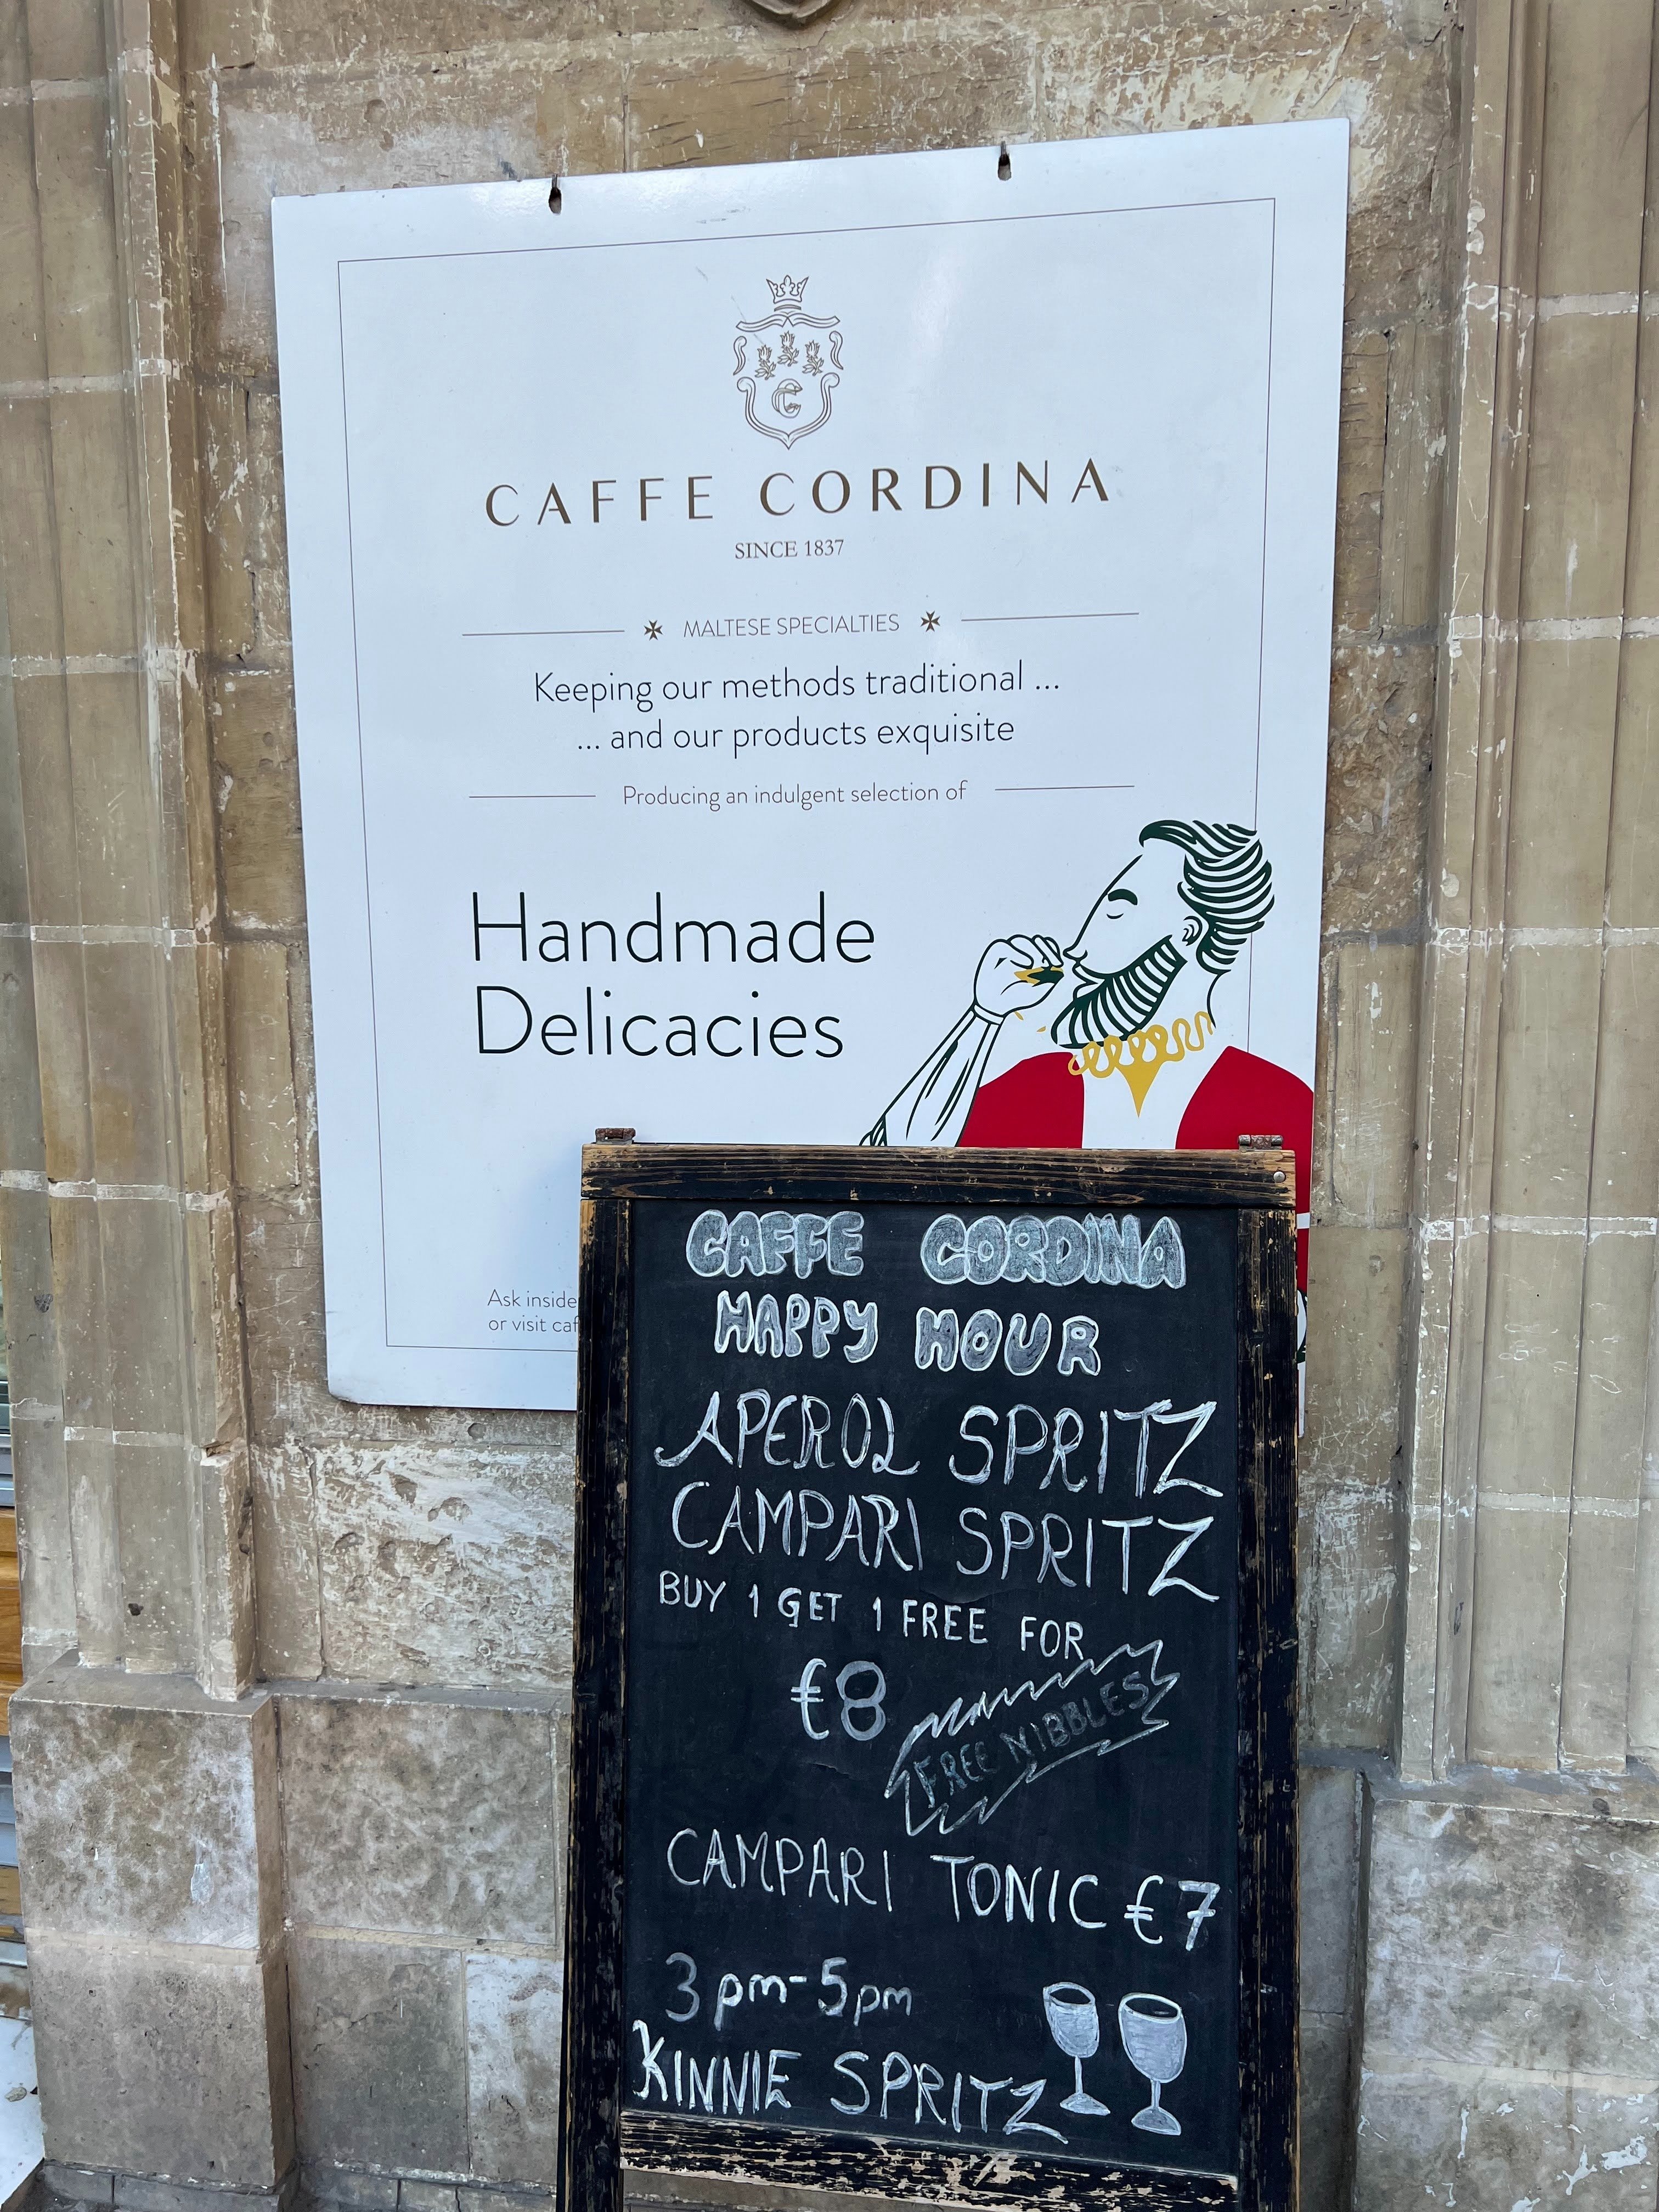 C
CAFFE CORDINA
SINCE 1837
MALTESE SPECIALTIES
Keeping our methods traditional ...
... and our products exquisite
Producing an indulgent selection of
Handmade
Delicacies
Ask inside
or visit caf
CAFFE CORDINA
HAPPY HOUR
APEROL SPRITZ
CAMPARI SPRITZ
BUY 1 GET 1 FREE FOR
€8
FREE NIBBLES
CAMPARI TONIC €7
3pm-5pm
KINNIE SPRITZ